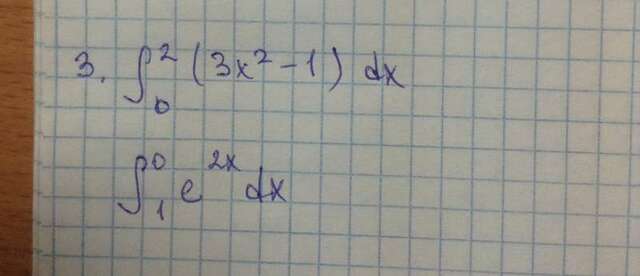 3. ∫₀² (3x² - 1) dx
∫₁⁰ e²ˣ dx